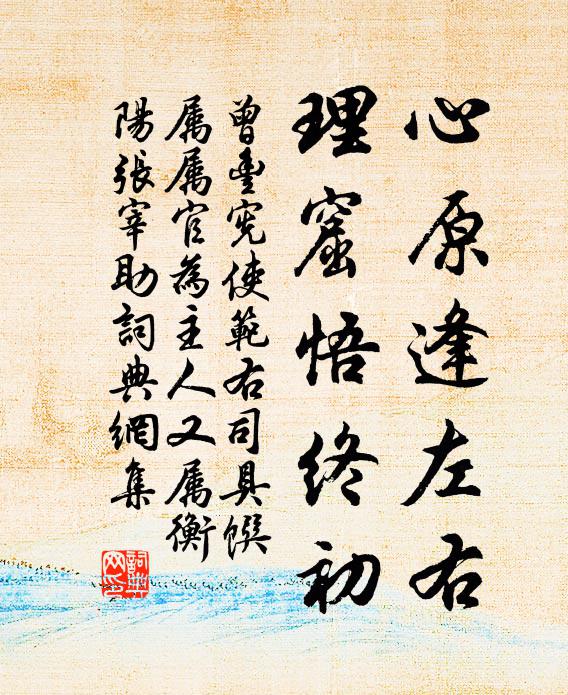 心原逢左右
理窟悟終初
曾豐宪使範右司具馔
属属官為主人又属衡
陽張宰助詞典網集